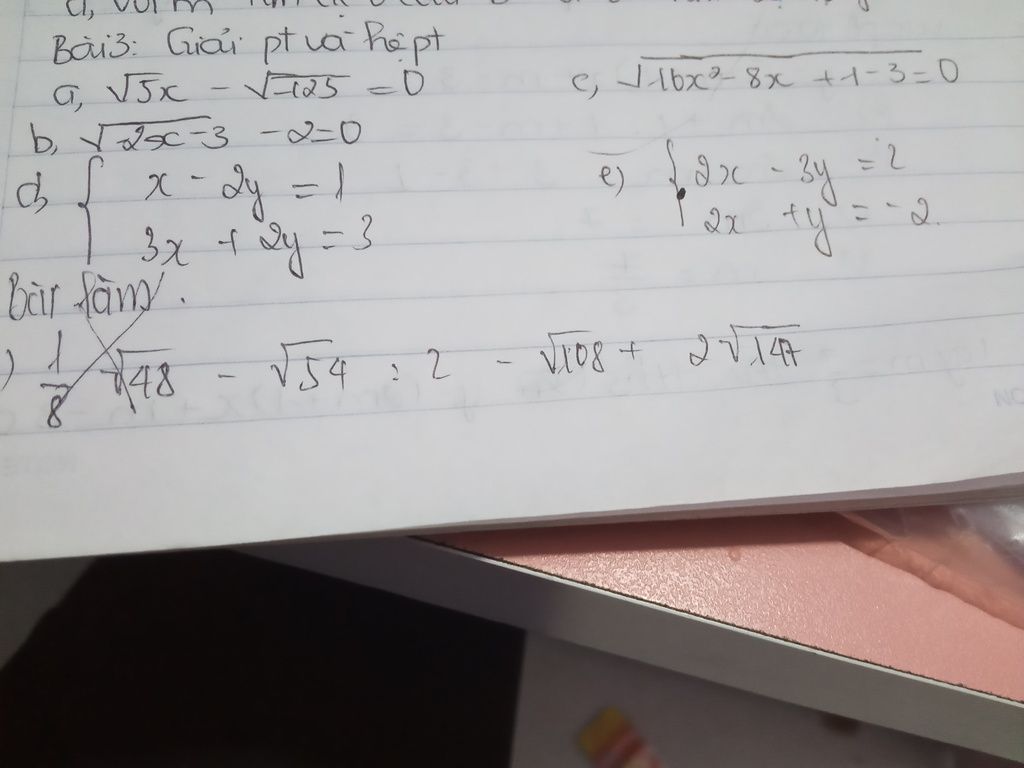 Bài3: Giải pt và hệ pt
a, √5x - √125 = 0
c, √16x²- 8x + 1 - 3 = 0
b, √2x - 3 - 2 = 0
d, { x - 2y = 1
3x + 2y = 3
e) { 2x - 3y = 2
2x + y = - 2.
Bài làm.
) 1/8 √48 - √54 : 2 - √108 + 2√147